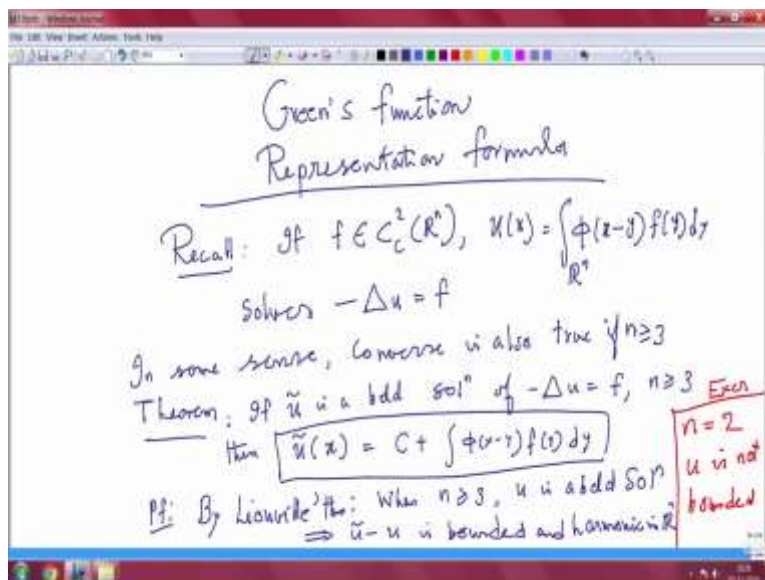 Green's function
Representation formula
Recall: If f ∈ C_c^2(ℝ^n), u(x) = ∫_{ℝ^n} ϕ(x-y) f(y) dy
solves -Δu = f
In some sense, Converse is also true if n≥3
Theorem: If ũ is a bdd sol^n of -Δu = f, n≥3
then ũ(x) = C + ∫ϕ(x-y) f(y) dy
Pf: By Liouville's thm: When n≥3, u is a bdd sol^n
⇒ ũ-u is bounded and harmonic in ℝ^n
Exer
n = 2
u is not
bounded